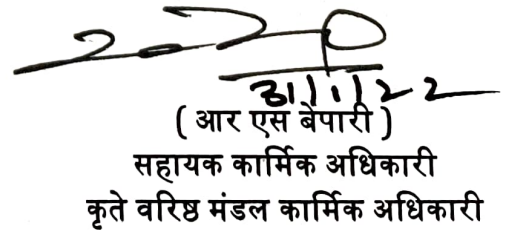 31/1/22
( आर एस बेपारी )
सहायक कार्मिक अधिकारी
कृते वरिष्ठ मंडल कार्मिक अधिकारी